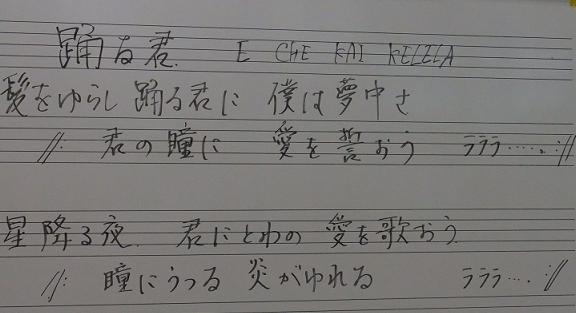 踊る君. E CHE KAI KELELA
髪をゆらし 踊る君に 僕は夢中さ
//: 君の瞳に 愛を誓おう ラララ……://
星降る夜. 君にとわの 愛を歌おう
//: 瞳にうつる 炎がゆれる ラララ….://